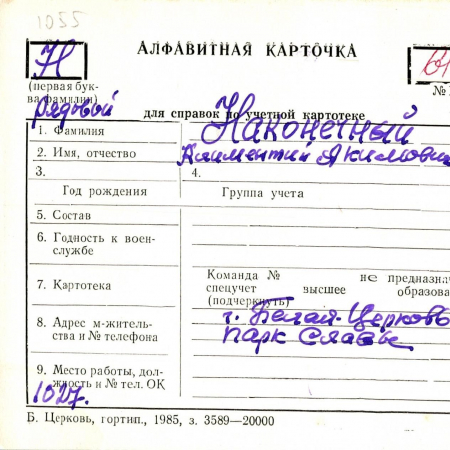 1055
Н АЛФАВИТНАЯ КАРТОЧКА
(первая бук-
ва фамилии) №
Рядовой для справок по учетной картотеке
1. Фамилия Наконечный
2. Имя, отчество Климентий Акимович
3. 4.
Год рождения Группа учета
5. Состав
6. Годность к воен-
службе
7. Картотека Команда № не предназна
спецучет высшее образова
(подчеркнуть)
8. Адрес м-житель- г. Белая-Церковь
ства и № телефона парк Славы
9. Место работы, дол-
жность и № тел. ОК
1027.
Б. Церковь, гортип., 1985, з. 3589—20000